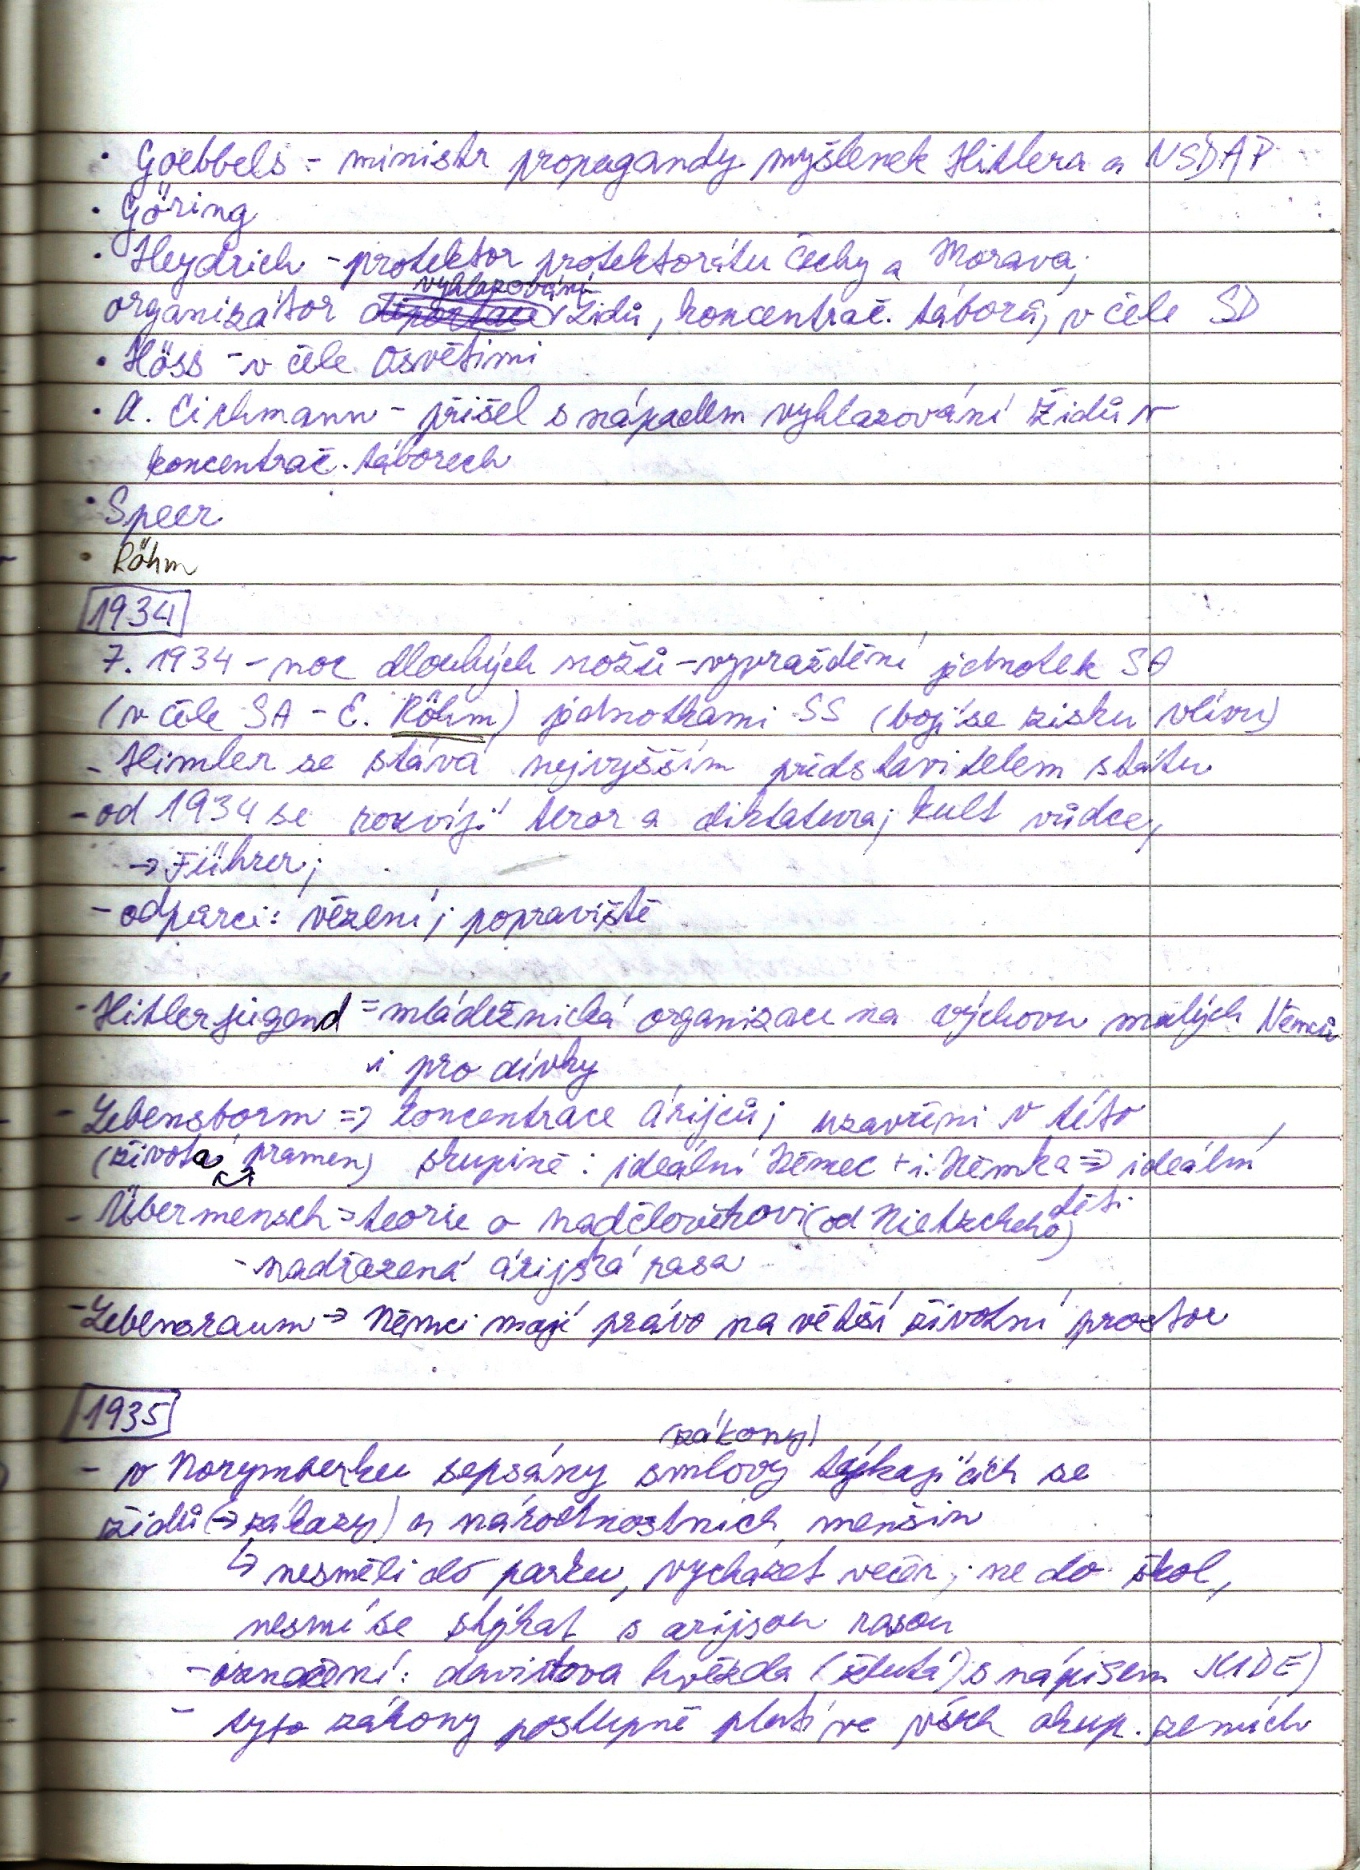 • Goebbels - ministr propagandy myšlenek Hitlera a NSDAP
• Göring
• Heydrich - protektor protektorátu Čechy a Morava,
vyhlazování
organizátor deportace židů, koncentrač. táborů, v čele SD
• Höss - v čele Osvětimi
• A. Eichmann - přišel s nápadem vyhlazování Židů v
koncentrač. táborech
• Speer
• Röhm
1934
7. 1934 - noc dlouhých nožů - vyvraždění jednotek SA
(v čele SA - E. Röhm) jednotkami SS (bojí se zisku vlivu)
- Himler se stává nejvyšším představitelem státu
- od 1934 se rozvíjí teror a diktatura; kult vůdce,
→ Führer;
- odpůrci: vězení, popraviště
- Hitlerjugend = mládežnická organizace na výchovu malých Němců
i pro dívky
- Lebensborm => koncentrace árijců; uzavřeni v této
(života pramen) skupině: ideální Němec + i. Němka => ideální
děti
- Übermensch = teorie o nadčlověkovi (od Nietzcheho)
- nadřazená árijská rasa
- Lebensraum → Němci mají právo na větší životní prostor
1935
(zákony)
- v Norymberku sepsány smlovy týkajících se
židů (→ zákazy) a národnostních menšin
↳ nesměli do parku, vycházet večer, ne do škol,
nesmí se stýkat s arijsou rasou
- označení: davidova hvězda (žlutá) s nápisem JUDE)
- tyto zákony postupně platí ve všech okup. zemích